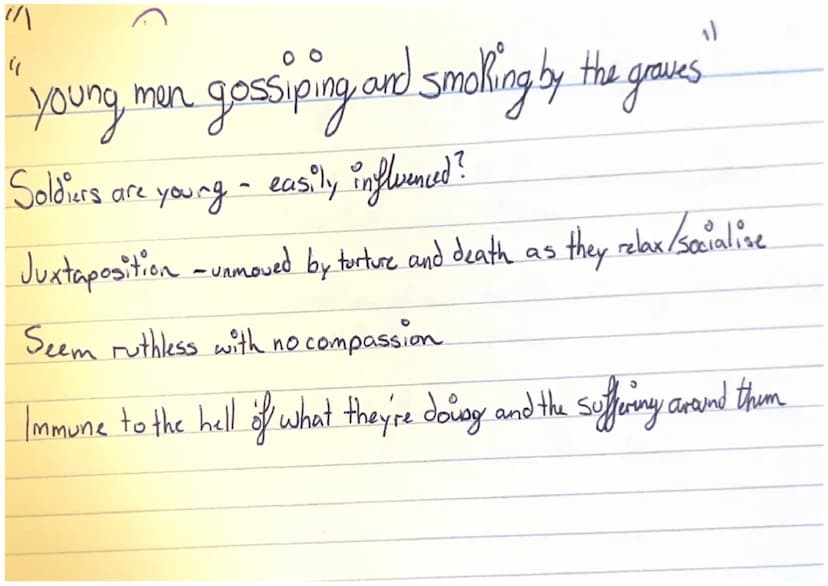 "young men gossiping and smoking by the graves"
Soldiers are young - easily influenced?
Juxtaposition - unmoved by torture and death as they relax/socialise
Seem ruthless with no compassion
Immune to the hell of what they're doing and the suffering around them